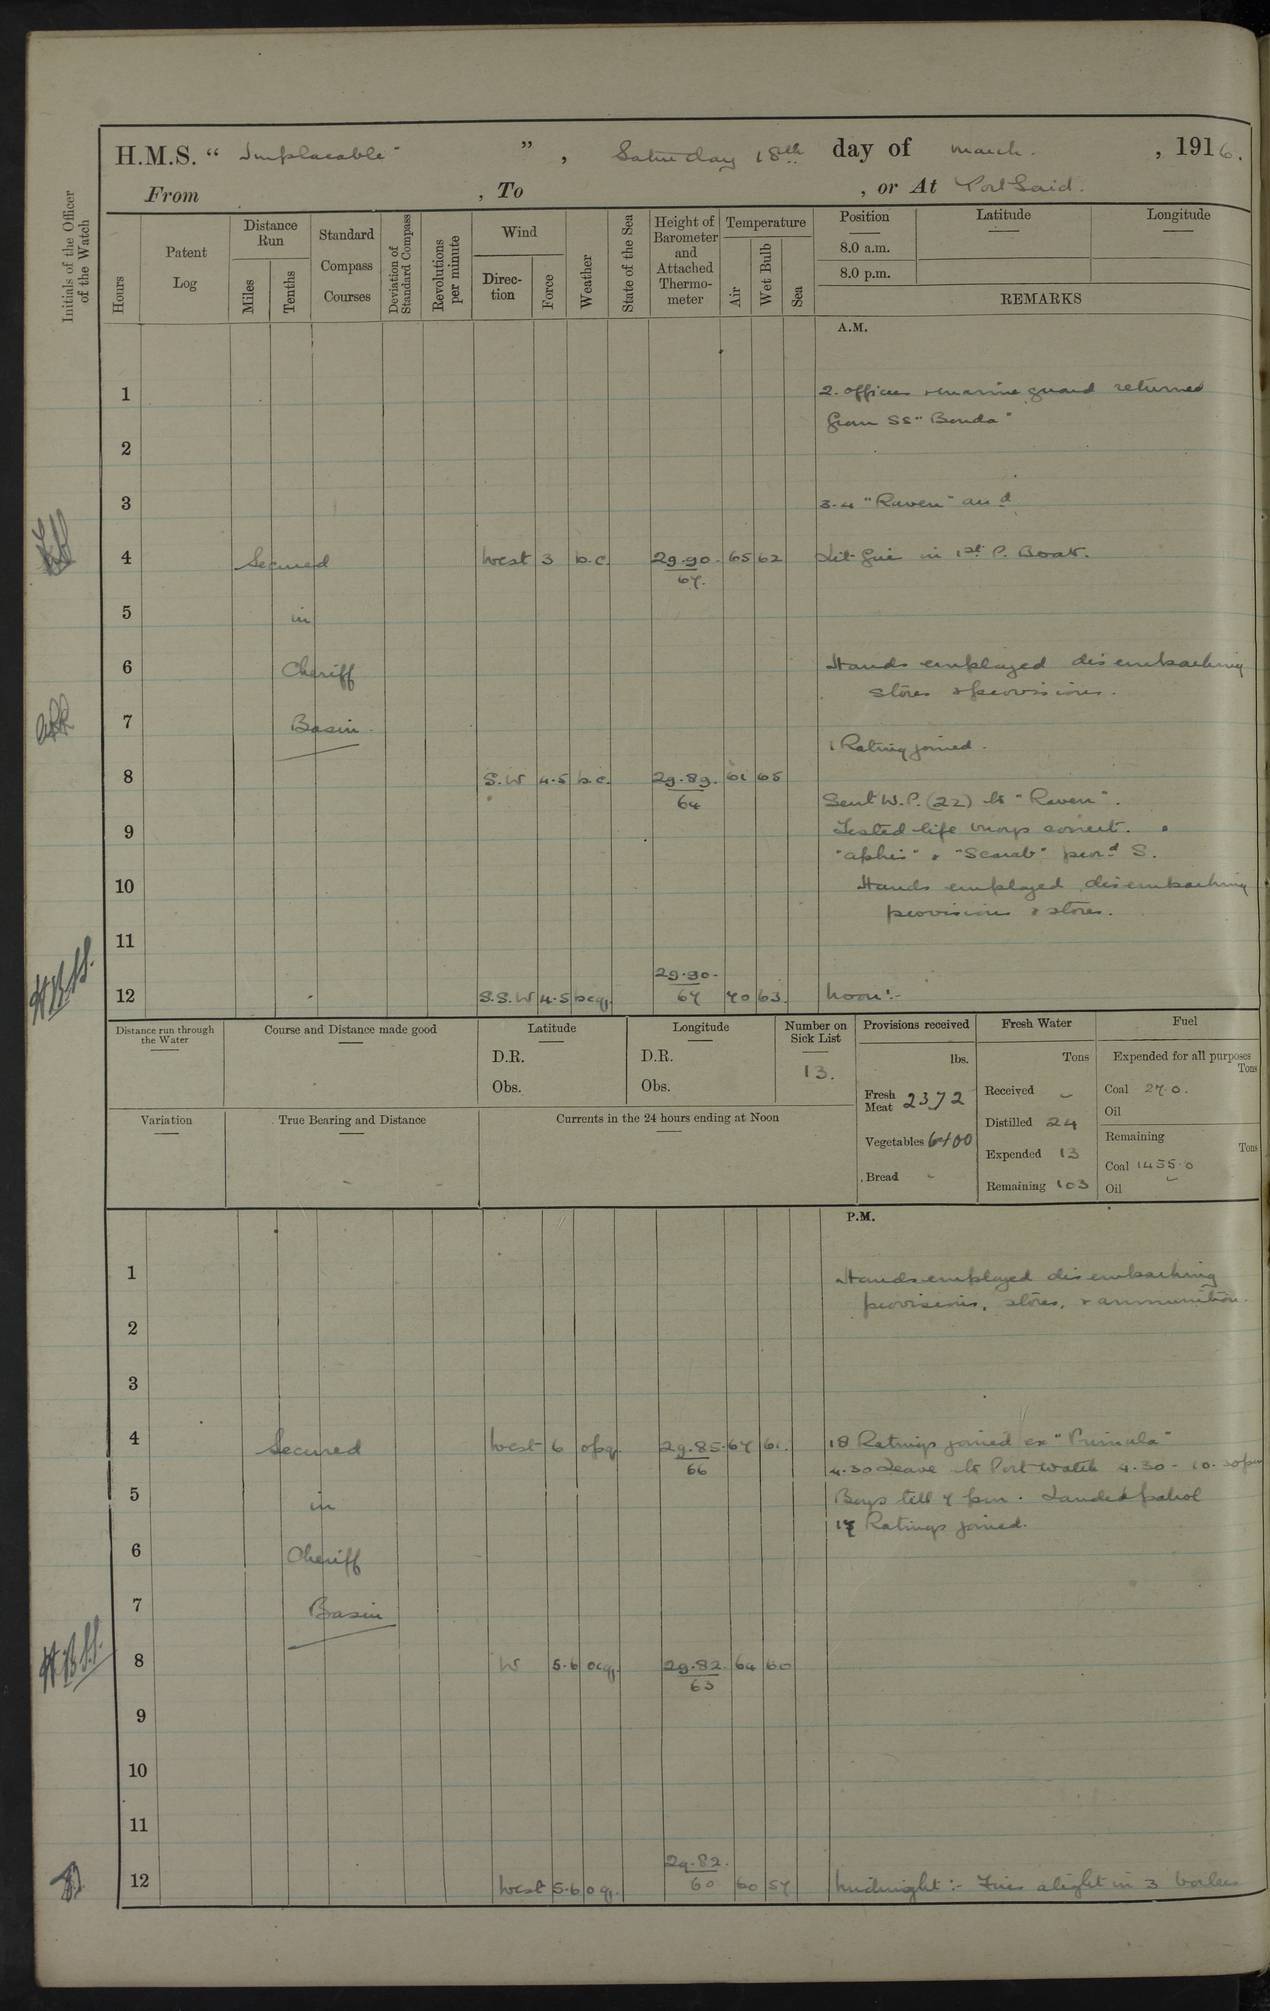 H.M.S. " Implacable " , Saturday 18th day of March. , 1916.
From , To , or At Port Said.
Initials of the Officer of the Watch
Hours
Patent Log
Distance Run
Miles
Tenths
Standard Compass Courses
Deviation of Standard Compass
Revolutions per minute
Wind
Direc-tion
Force
Weather
State of the Sea
Height of Barometer and Attached Thermo-meter
Temperature
Air
Wet Bulb
Sea
Position
Latitude
Longitude
8.0 a.m.
8.0 p.m.
REMARKS
A.M.
1 2. officers & marine guard returned
from SS "Bonda"
2
3 3-4 "Raven" arrd
4 Secured West 3 b.c. 29.90. 65 62 Lit fire in 1st P. Boat.
67.
5 in
6 Cheriff Hands employed disembarking
stores & provisions.
7 Basin
1 Rating joined.
8 S.W 4-5 b.c. 29.89. 61 65
64 Sent W.P. (22) to "Raven".
9 Tested life buoys correct.
"Aphis" & "Scarab" procd S.
10 Hands employed disembarking
provisions & stores.
11
29.90.
12 S.S.W 4-5 bcq. 67 70 63. Noon:-
H.B.S.
Distance run through the Water
Course and Distance made good
Latitude
D.R.
Obs.
Longitude
D.R.
Obs.
Number on Sick List
13.
Provisions received
lbs.
Fresh Meat 2372
Vegetables 6400
Bread -
Fresh Water
Tons
Received -
Distilled 24
Expended 13
Remaining 103
Fuel
Expended for all purposes
Tons
Coal 27.0.
Oil
Remaining
Tons
Coal 1455.0
Oil -
Variation
True Bearing and Distance
Currents in the 24 hours ending at Noon
P.M.
1 Hands employed disembarking
provisions, stores, & ammunition.
2
3
4 Secured West 6 opq. 29.85. 67 61. 18 Ratings joined ex "Primula"
66 4.30 Leave to Port watch 4.30 - 10.30pm
5 in Boys till 7 pm. Landed patrol
17 Ratings joined.
6 Cheriff
7 Basin
8 W 5-6 ocq. 29.82. 64 60
63
H.B.S.
9
10
11
29.82.
12 West 5-6 oq. 60 60 57 Midnight:- Fires alight in 3 boilers